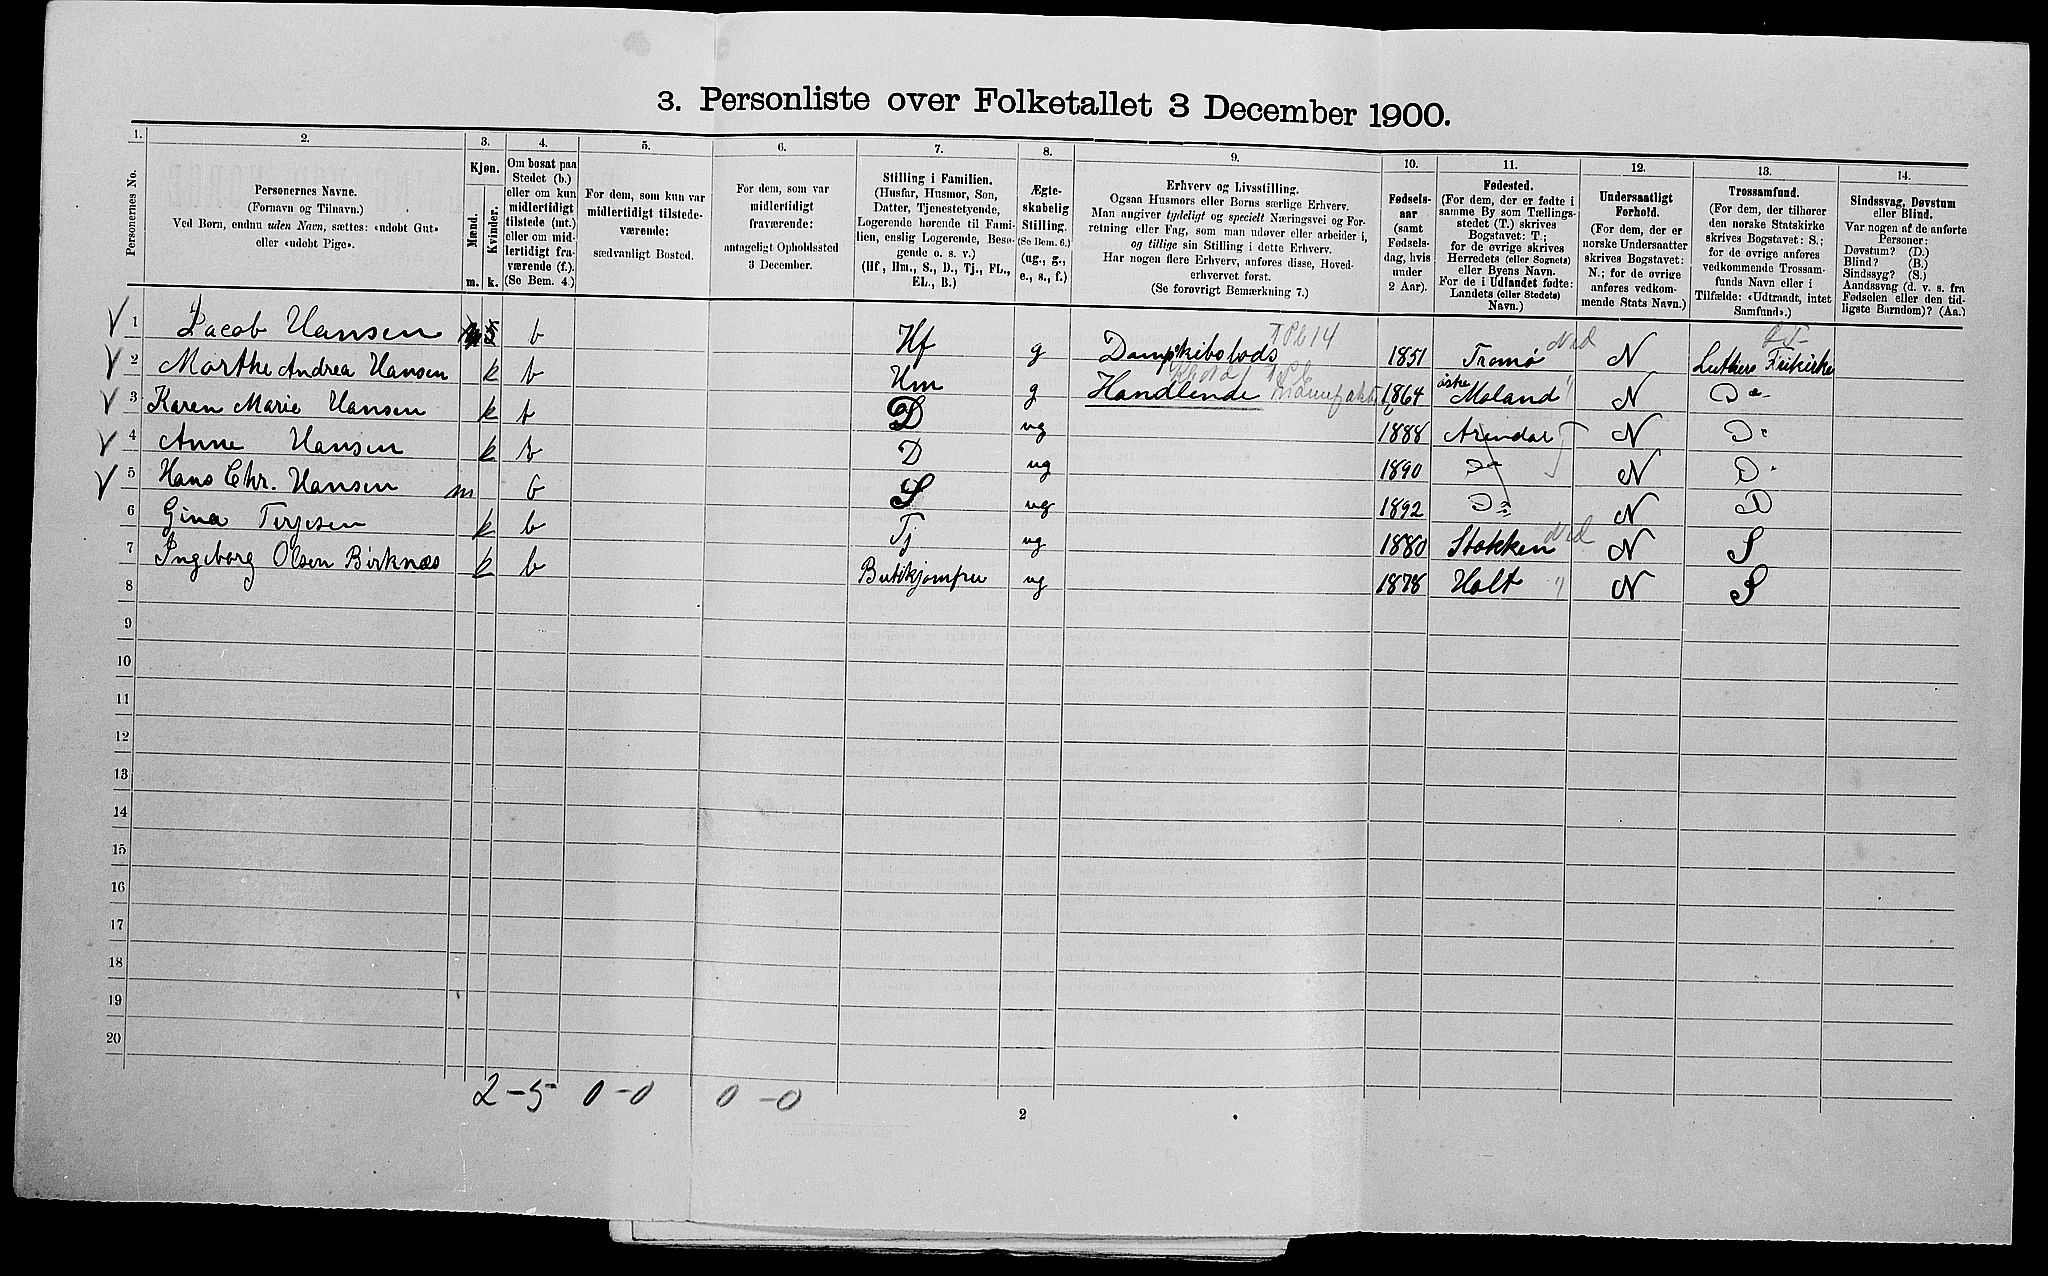 3. Personliste over Folketallet 3 December 1900.
1. 2. 3. 4. 5. 6. 7. 8. 9. 10. 11. 12. 13. 14.
Personernes No.
Personernes Navne.
(Fornavn og Tilnavn.)
Ved Børn, endnu uden Navn, sættes: «udøbt Gut»
eller «udøbt Pige».
Kjøn.
Mænd.
Kvinder.
m. k.
Om bosat paa
Stedet (b.)
eller om kun
midlertidigt
tilstede (mt.)
eller om mid-
lertidigt fra-
værende (f.).
(Se Bem. 4.)
For dem, som kun var
midlertidigt tilstede-
værende:
sædvanligt Bosted.
For dem, som var
midlertidigt
fraværende:
antageligt Opholdssted
3 December.
Stilling i Familien.
(Husfar, Husmor, Søn,
Datter, Tjenestetyende,
Logerende hørende til Fami-
lien, enslig Logerende, Besø-
gende o. s. v.)
(Hf., Hm., S., D., Tj., FL.,
EL., B.)
Ægte-
skabelig
Stilling.
(Se Bem. 6.)
(ug., g.,
e., s., f.)
Erhverv og Livsstilling.
Ogsaa Husmors eller Børns særlige Erhverv.
Man angiver tydeligt og specielt Næringsvei og For-
retning eller Fag, som man udøver eller arbeider i,
og tillige sin Stilling i dette Erhverv.
Har nogen flere Erhverv, anføres disse, Hoved-
erhvervet først.
(Se forøvrigt Bemærkning 7.)
Fødsels-
aar
(samt
Fødsels-
dag, hvis
under
2 Aar).
Fødested.
(For dem, der er fødte i
samme By som Tællings-
stedet (T.) skrives
Bogstavet: T.;
for de øvrige skrives
Herredets (eller Sognets)
eller Byens Navn.
For de i Udlandet fødte:
Landets (eller Stedets)
Navn.)
Undersaatligt
Forhold.
(For dem, der er
norske Undersaatter
skrives Bogstavet:
N.; for de øvrige
anføres vedkom-
mende Stats Navn.)
Trossamfund.
(For dem, der tilhører
den norske Statskirke
skrives Bogstavet: S.;
for de øvrige anføres
vedkommende Trossam-
funds Navn eller i
Tilfælde: «Udtraadt, intet
Samfund».)
Sindssvag, Døvstum
eller Blind.
Var nogen af de anførte
Personer:
Døvstum? (D.)
Blind? (B.)
Sindssyg? (S.)
Aandssvag (d. v. s. fra
Fødselen eller den tid-
ligste Barndom)? (Aa.)
1 Jacob Hansen b Hf g Dampskibslods 1851 Tromø N Luthers Frikirke
2 Marthe Andrea Hansen k b Hm g Handlende 1864 østre Moland N Do
3 Karen Marie Hansen k b D ug 1888 Arendal N Do
4 Anne Hansen k b D ug 1890 Do N Do
5 Hans Chr. Hansen m b S ug 1892 Do N D
6 Gina Terjesen k b Tj ug 1880 Stokken N S
7 Ingeborg Olsen Birknæs k b Butikjomfru ug 1878 Holt N S
8
9
10
11
12
13
14
15
16
17
18
19
20
2-5 0-0 0-0
2